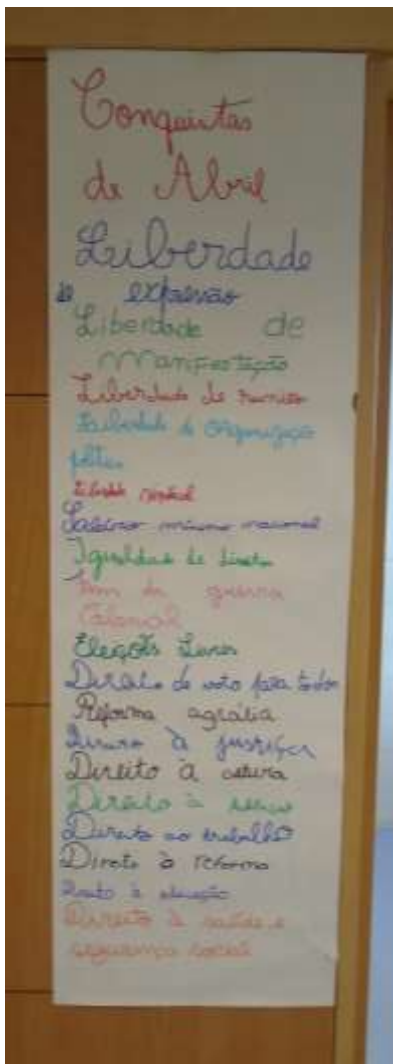 Conquistas
de Abril
Liberdade
de expressão
Liberdade de
Manifestação
Liberdade de reunião
Liberdade de Organização
política
Liberdade sindical
Salário mínimo nacional
Igualdade de direitos
Fim da guerra
Colonial
Eleições Livres
Direito de voto para todos
Reforma agrária
Direito à justiça
Direito à cultura
Direito à
Direito ao trabalho
Direito à reforma
Direito à educação
Direito à saúde e
segurança social